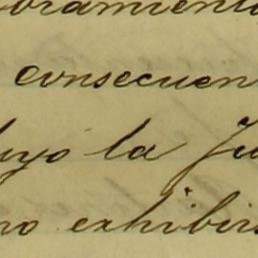 oramient
consecuen
uyo la Ju
no exhibir